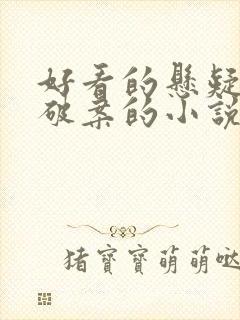 好看的懸疑
破案的小說
猪寶寶萌萌噠